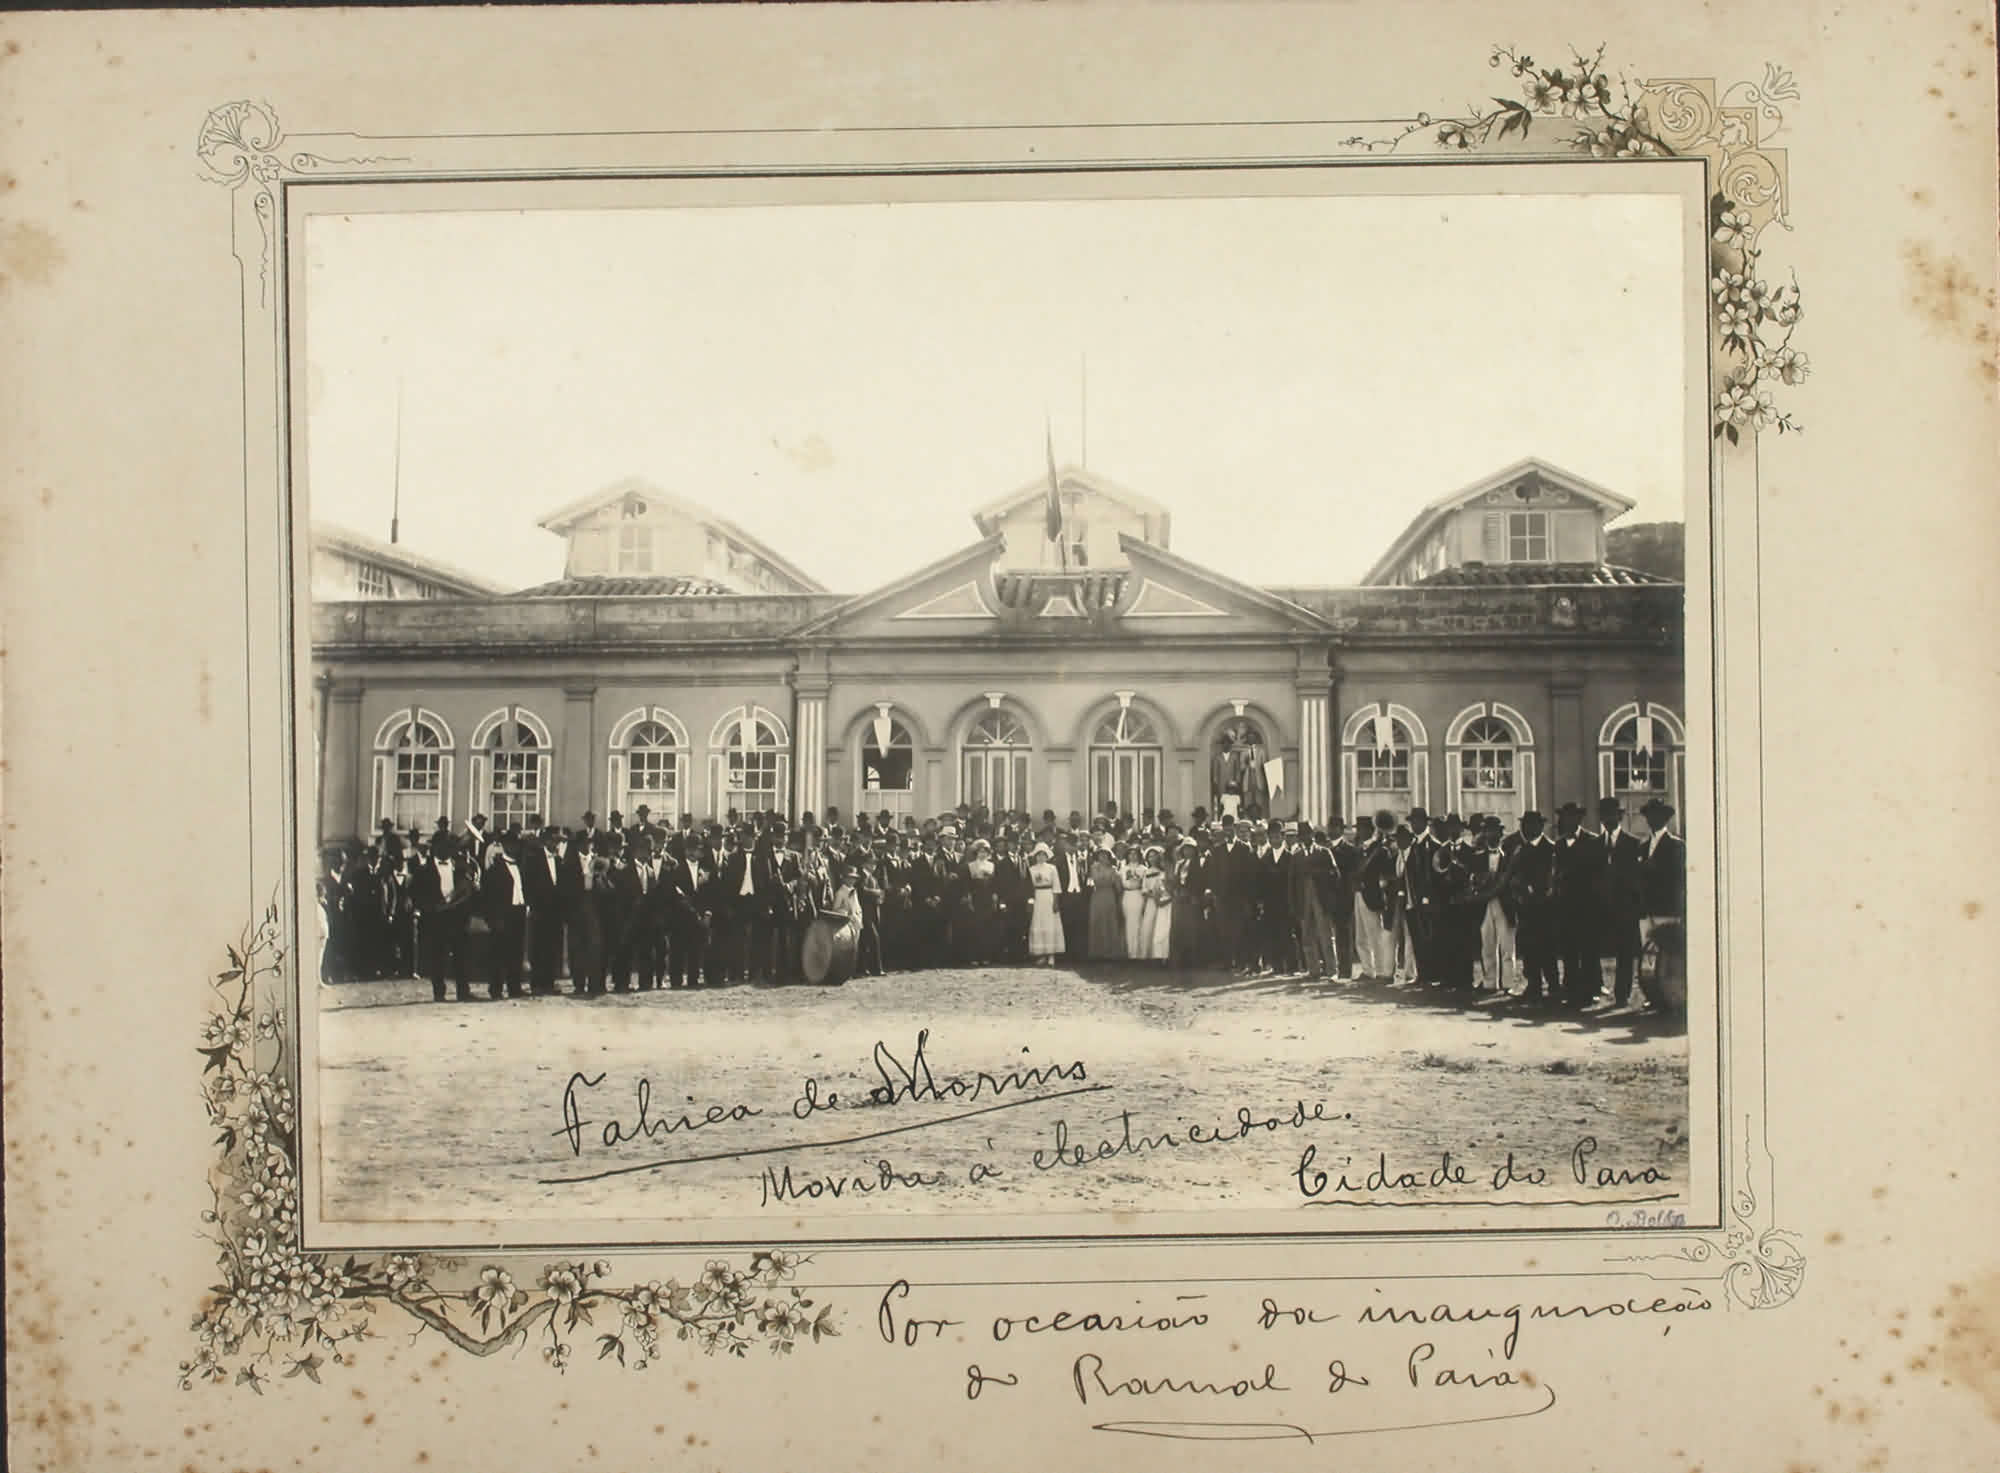 Fabrica de Morins
Movida á electricidade.
Cidade do Pará
Por occasião da inauguração
do Ramal do Pará